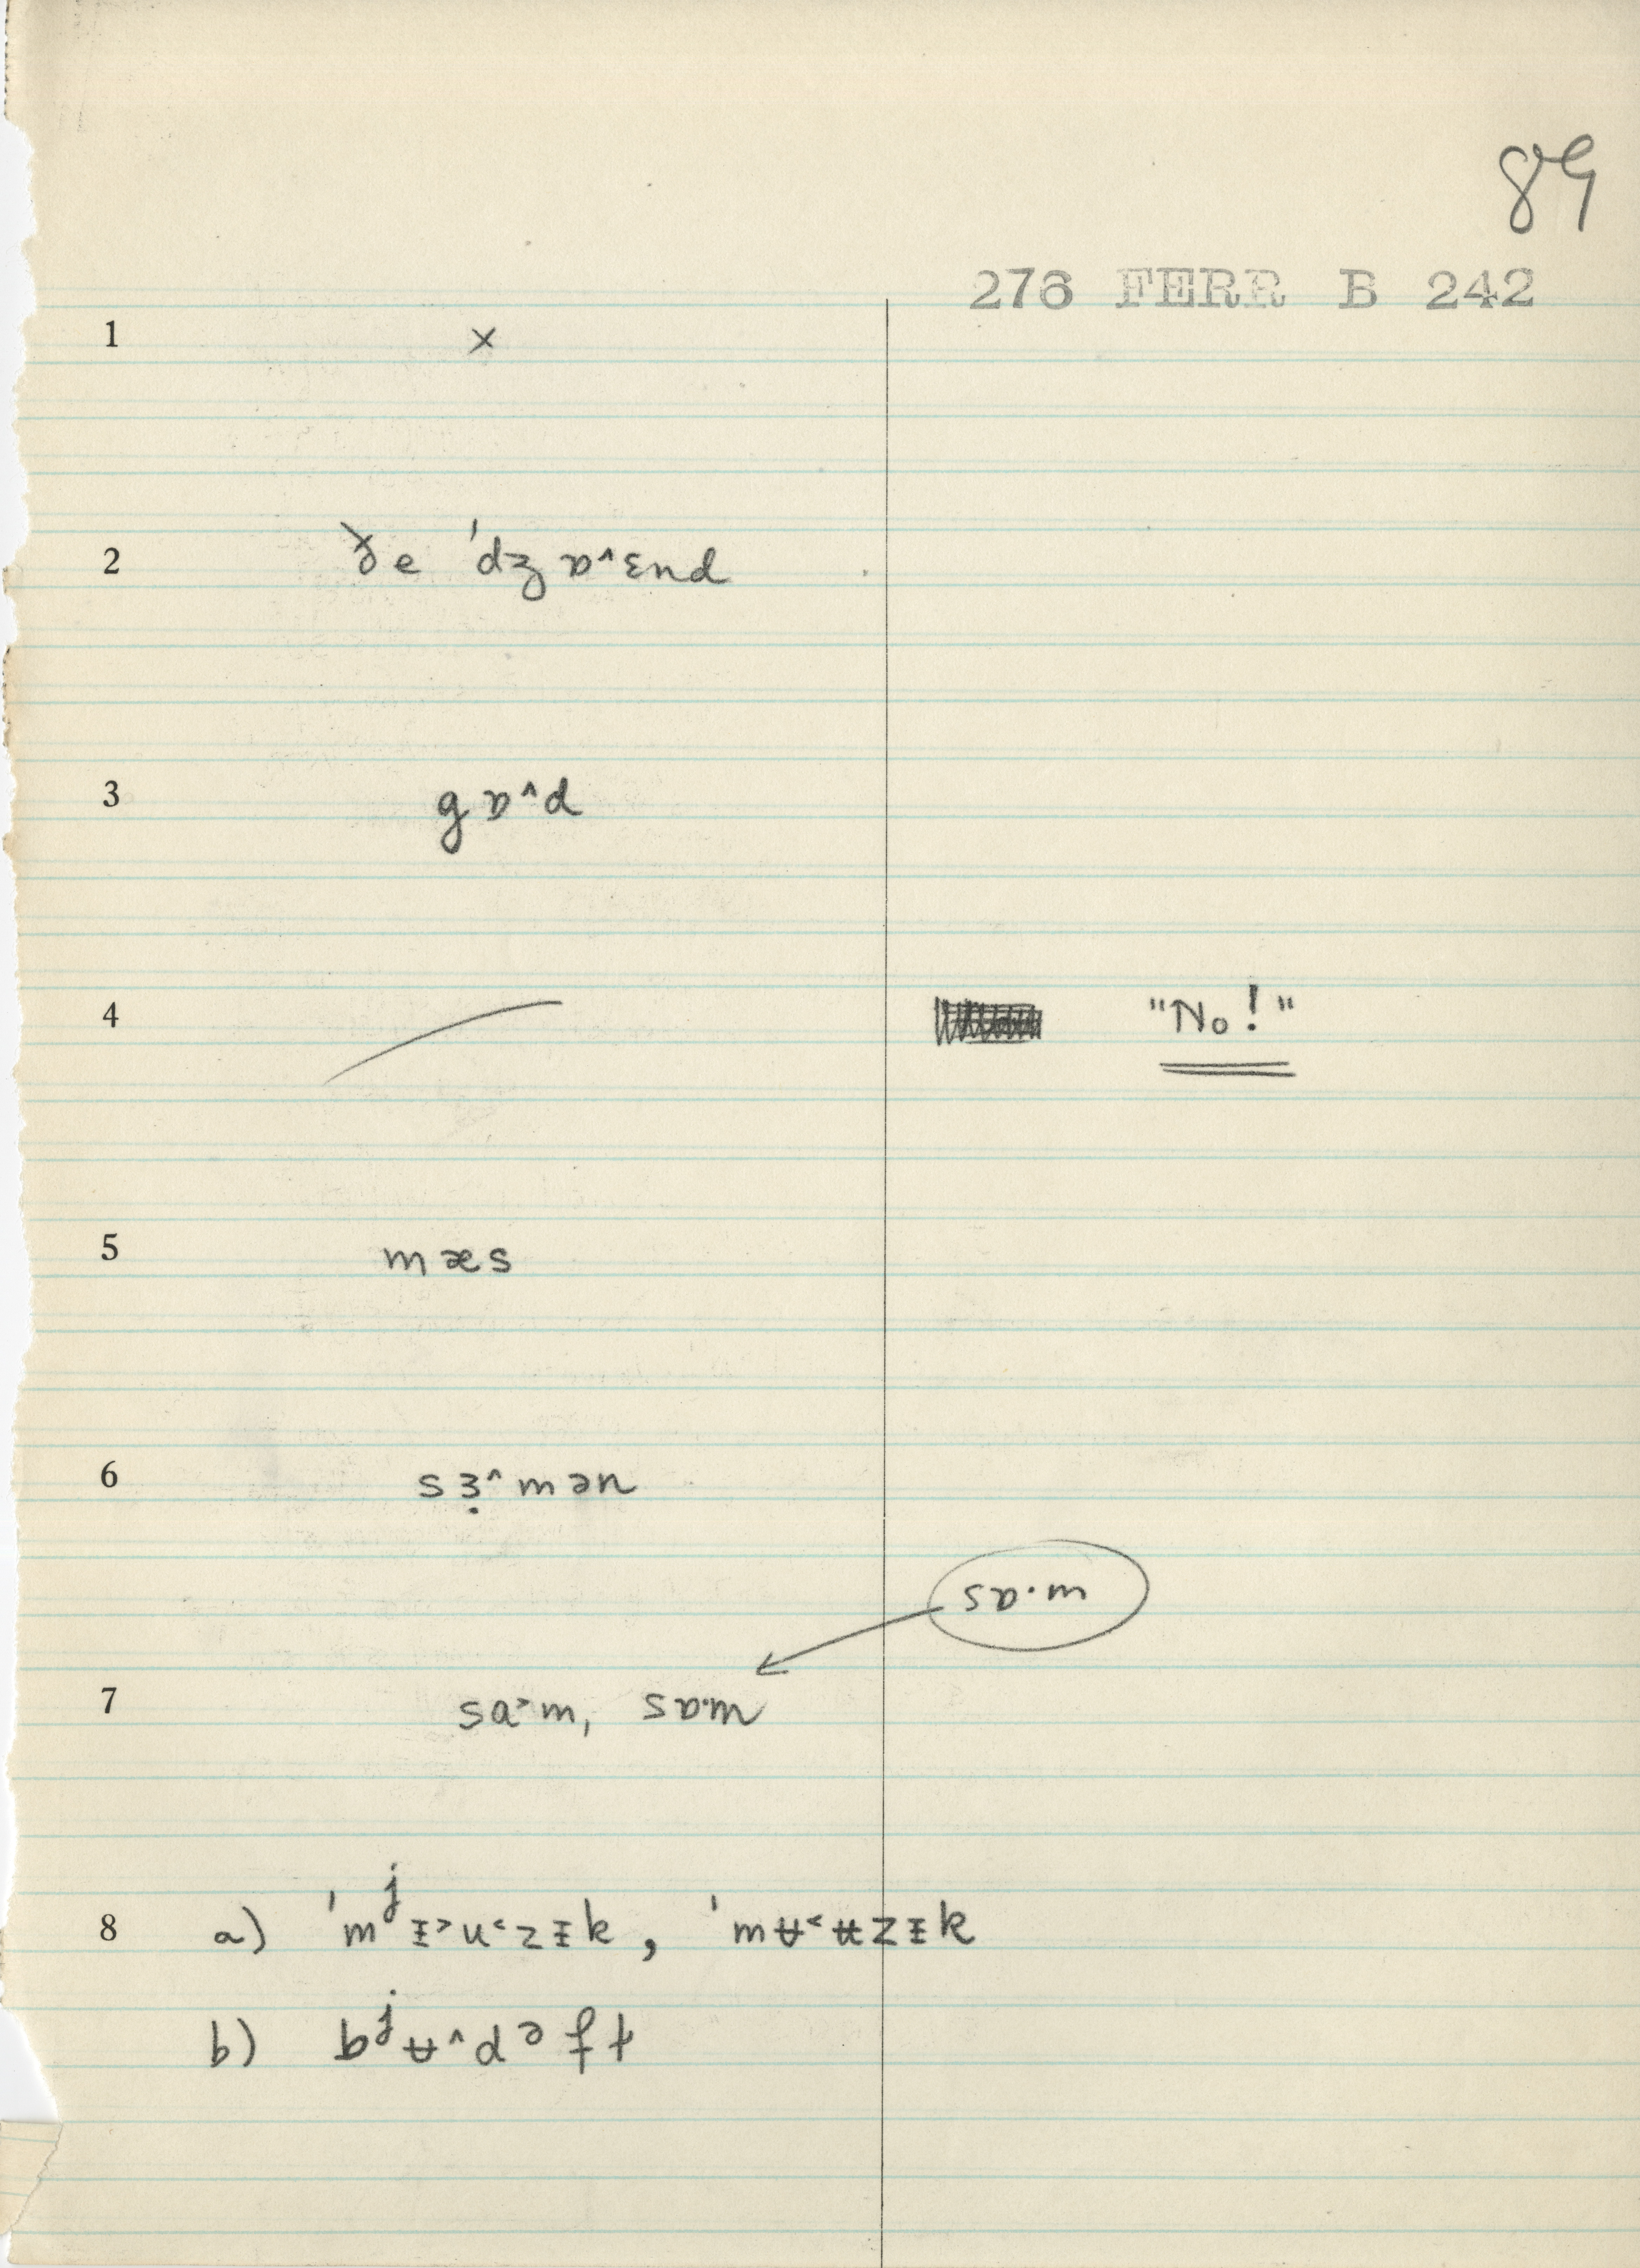 89
276 FERR B 242
1 ×
2 ðe ˈdʒɒ˄ɛnd
3 gɒ˄d
4 "No!"
5 mæs
6 sɜ̣˄mən
sɒ·m
7 sa˃m, sɒ·m
8 a) ˈmʲɪ̵˃u˂zɪ̵k, ˈmʉ˂ʉzɪ̵k
b) bʲʉ˄dəfɫ